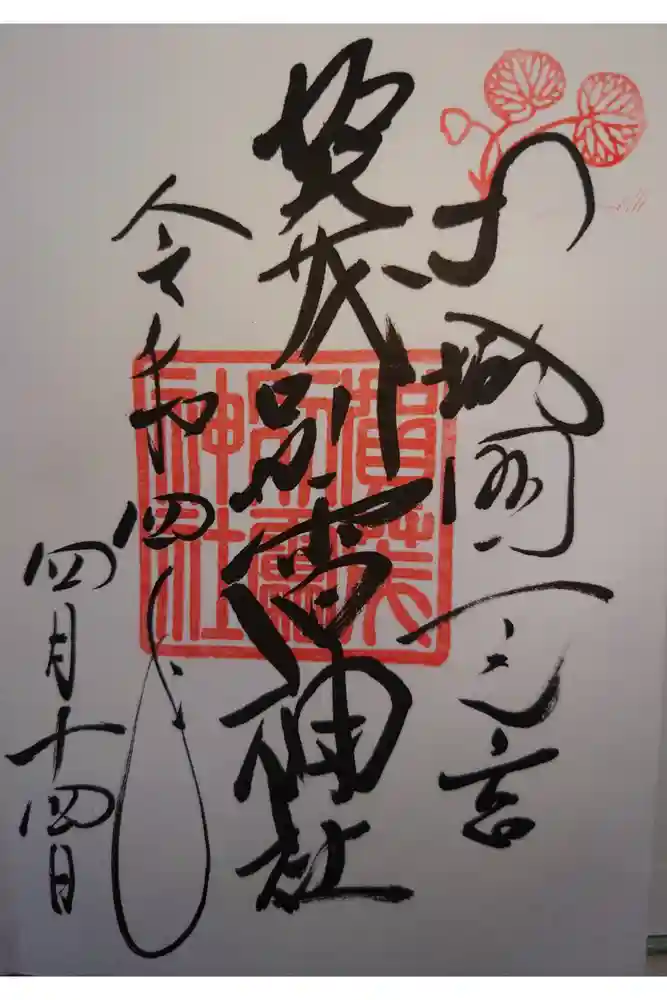 山城國一之宮
賀茂別雷神社
令和四年
四月十四日
賀茂
別雷
神社